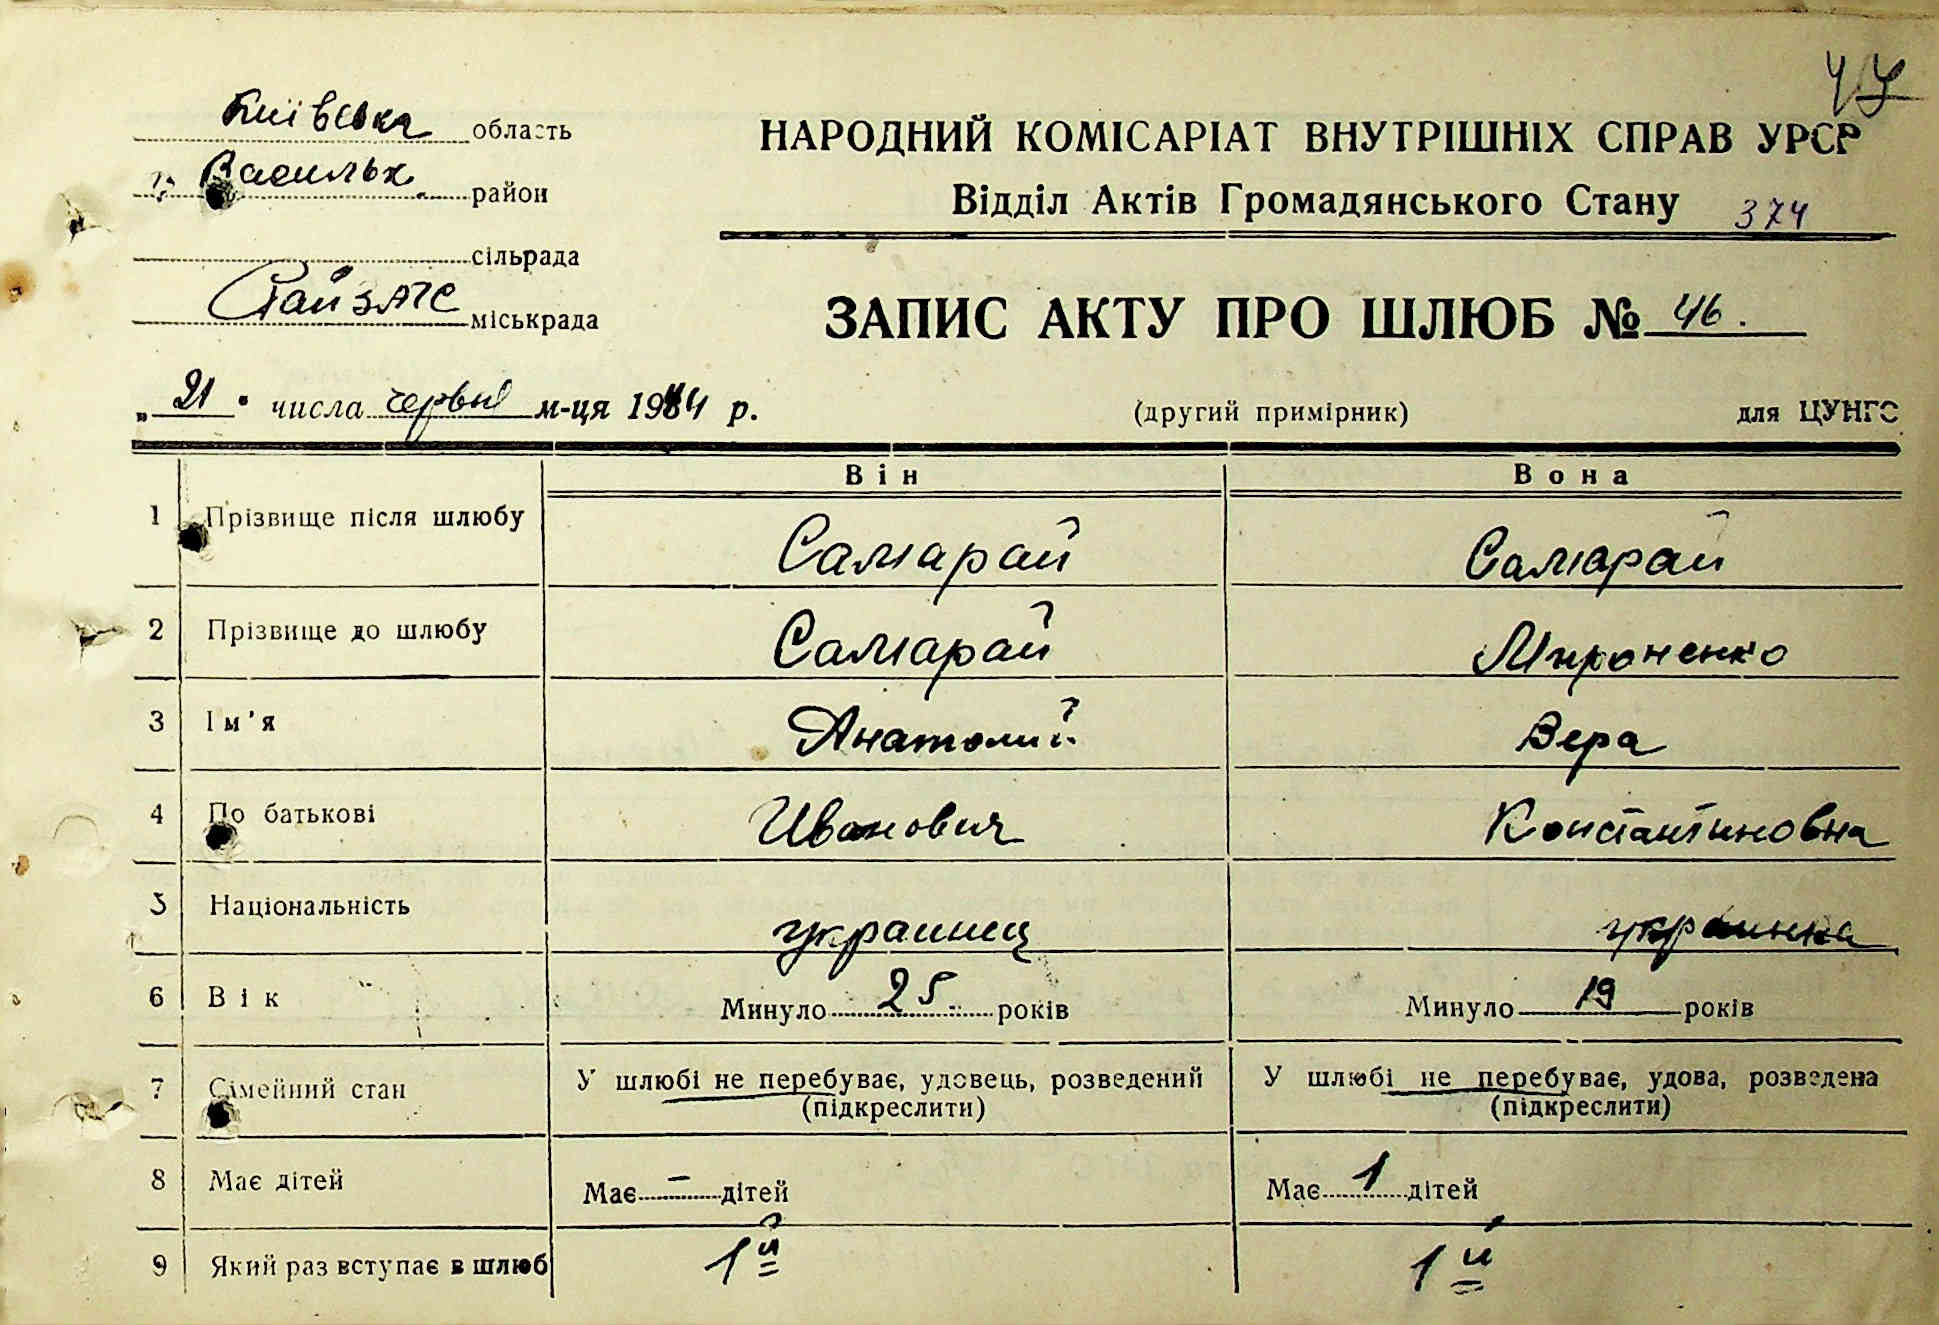 47
Київська область
Васильк. район
сільрада
РайЗАГС міськрада
НАРОДНИЙ КОМІСАРІАТ ВНУТРІШНІХ СПРАВ УРСР
Відділ Актів Громадянського Стану 374
ЗАПИС АКТУ ПРО ШЛЮБ № 46.
„21" числа червня м-ця 1944 р.
(другий примірник) для ЦУНГО
Він Вона
1 Прізвище після шлюбу Самарай Самарай
2 Прізвище до шлюбу Самарай Мироненко
3 Ім'я Анатолий Вера
4 По батькові Иванович Константиновна
5 Національність украинец украинка
6 Вік Минуло 25 років Минуло 19 років
7 Сімейний стан У шлюбі не перебуває, удовець, розведений У шлюбі не перебуває, удова, розведена
(підкреслити) (підкреслити)
8 Має дітей Має – дітей Має 1 дітей
9 Який раз вступає в шлюб 1й 1й